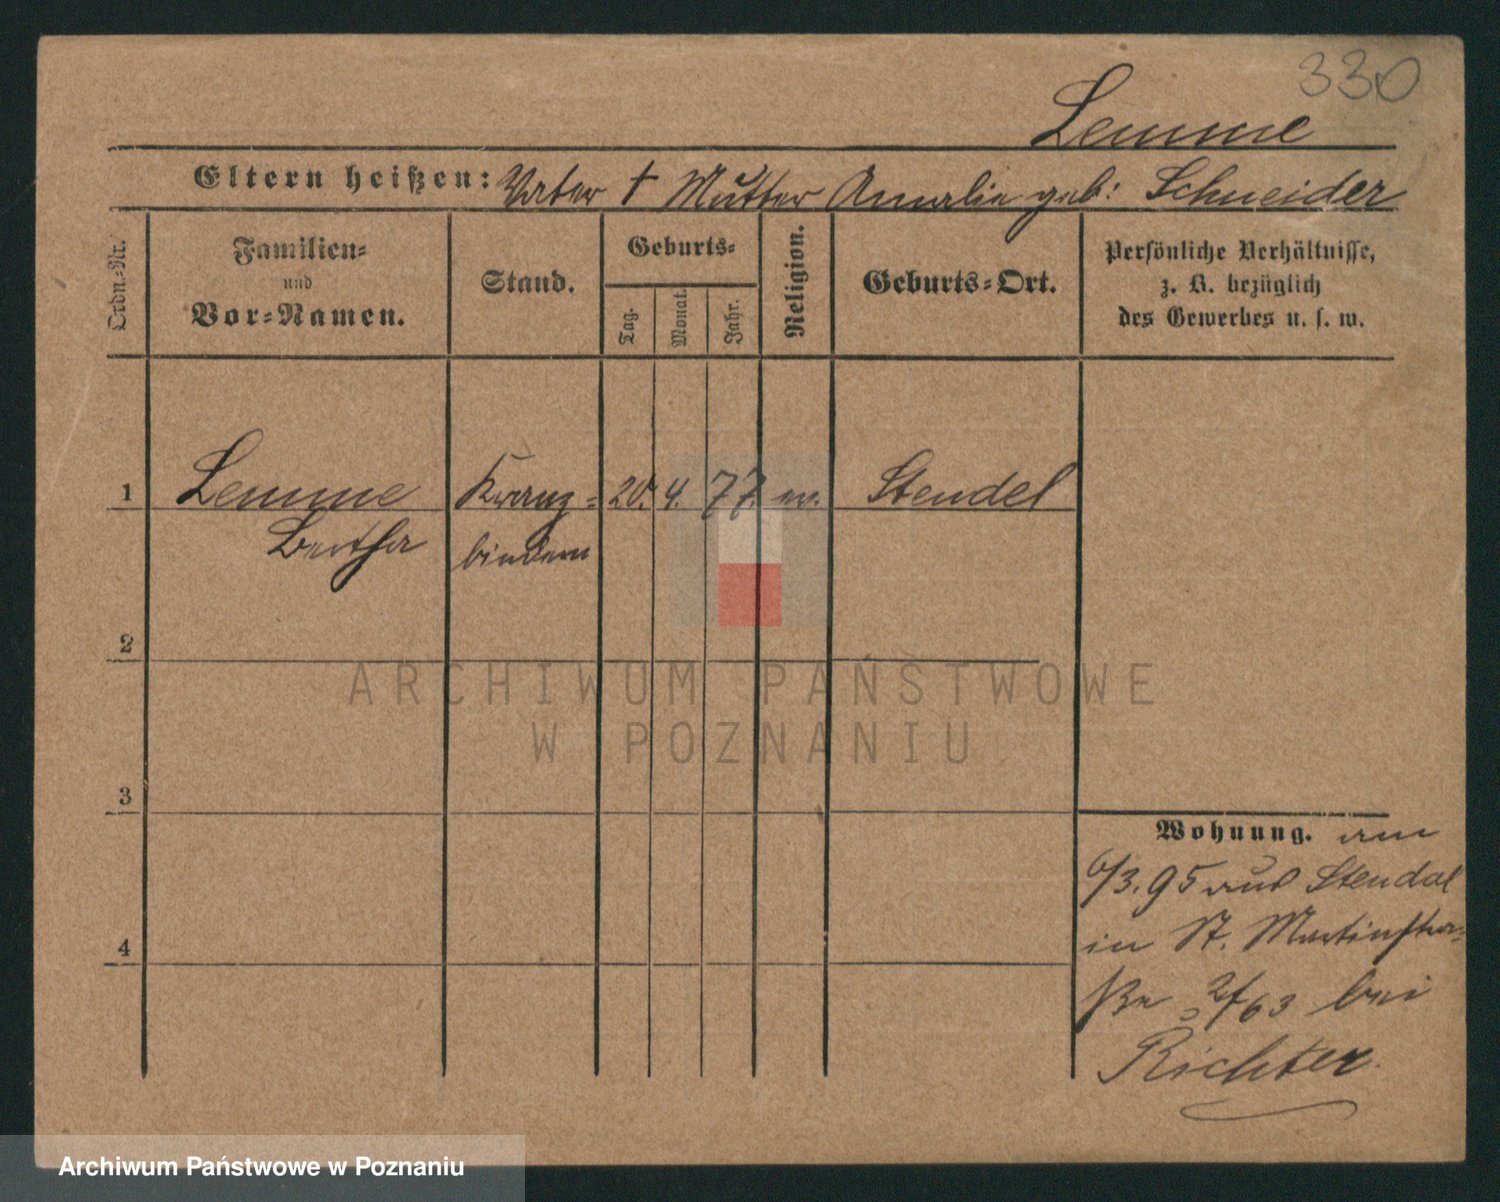 330
Lemme
Eltern heißen: Vater † Mutter Amalie geb: Schneider
Ordn.-Nr.
Familien-
und
Vor-Namen.
Stand.
Geburts-
Tag.
Monat.
Jahr.
Religion.
Geburts-Ort.
Persönliche Verhältnisse,
z. B. bezüglich
des Gewerbes u. s. w.
1 Lemme Kranz- 20. 4. 77. ev. Stendel
Bertha binderin
2
ARCHIWUM PAŃSTWOWE
W POZNANIU
3
Wohnung. am
6/3.95 aus Stendal
in St. Martinstra-
ße 2/63 bei
Richter.
4
Archiwum Państwowe w Poznaniu